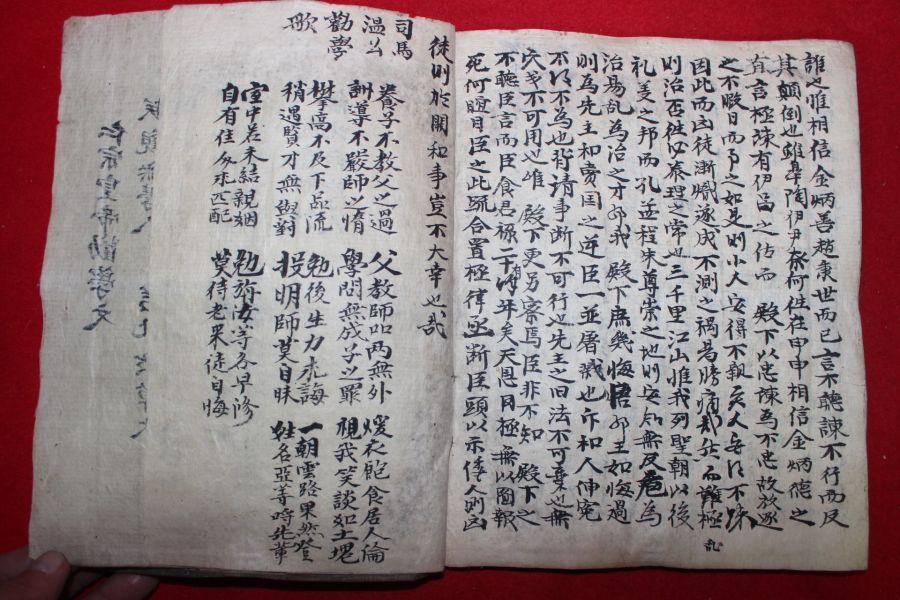 誰之惟相信金炳善趙秉世而已言不聽諫不行而反
其顚倒也雖皐陶伊尹奈何徃在甲申相信金炳德之
直言極諫有伊昌之佑而 殿下以忠諫爲不忠故放逐
之不暇日而事之如是則小人安得不執 矣安得不殊
因此而凶徒漸熾遂成不測之禍曷勝痛却然而雖極
則治否徃泰理之常也三千里江山惟我列聖朝以後
礼義之邦而孔孟程朱尊崇之地則安知無反危爲
治易乱爲治之才耶我 殿下庶幾悔悟耶王如悔過
則爲先王和賣国之逆臣一並屠戮也斥和人伸寃
不得不爲也背請事断不可行也先王之旧法不可棄也無
不可用也惟 殿下更另察焉臣非不知 殿下之
不聽臣言而臣食君禄二十有年矣天恩罔極無以圖報
死何瞑目臣之此疏合置極律亟断臣頭以示倭人則凶
乱
徒則於開和事豈不大幸也哉
司馬
温公
勸學
歌
養子不教父之過 父教師 兩無外 煖衣飽食居人倫
訓導不嚴師之惰 學問無成子之罪 視我笑談如土塊
攀高不及下品流 勉後生力求誨 一朝雲路果然登
稍遇賢才無與對 投明師莫自昧 姓名亞等呼先輩
室中若未結親姻 勉旃汝等各早修
自有佳人求匹配 莫待老來徒自悔